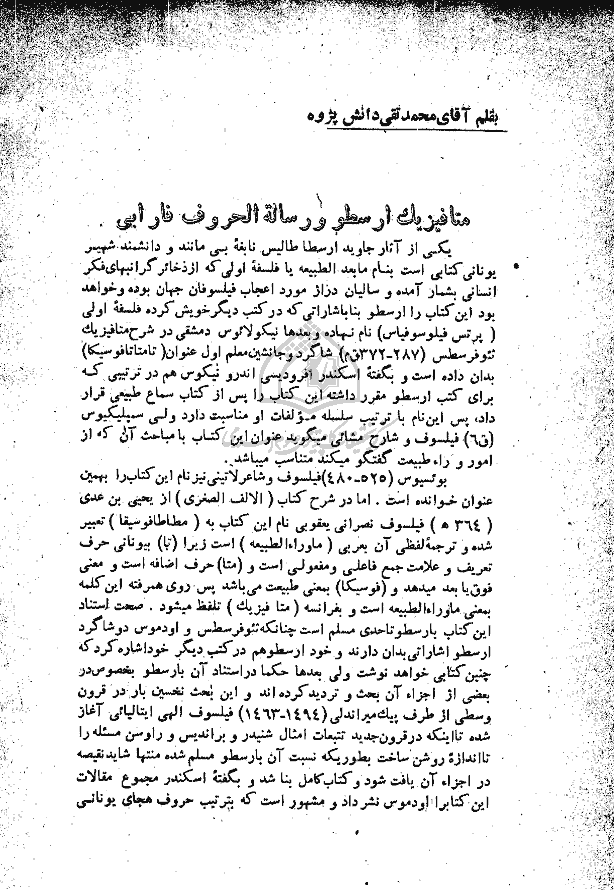 بقلم آقای محمدتقی دانش پژوه
متافیزیك ارسطو ورسالة الحروف فارابی
یکی از آثار جاوید ارسطا طالیس نابغهٔ بی مانند و دانشمند شهیر
یونانی کتابی است بنام مابعد الطبیعه یا فلسفهٔ اولی که از ذخائر گرانبهای فکر
انسانی بشمار آمده و سالیان دراز مورد اعجاب فیلسوفان جهان بوده وخواهد
بود این کتاب را ارسطو بنا باشاراتی که در کتب دیگر خویش کرده فلسفهٔ اولی
( پرتس فیلوسوفیاس) نام نهاده وبعدها نیکولائوس دمشقی در شرح متافیزیك
تئوفرسطس (۲۸۷-۳۷۲ق‌م) شاگرد وجانشین معلم اول عنوان( تامتاتافوسیکا)
بدان داده است و بگفتهٔ اسکندر افرودیسی اندرو نیکوس هم در ترتیبی کـه
برای کتب ارسطو مقرر داشته این کتاب را پس از کتاب سماع طبیعی قرار
داد، پس این نام با ترتیب سلسله مؤلفات او مناسبت دارد ولـی سمپلیکیوس
(ق٦) فیلسوف و شارح مشائی میگوید عنوان این کتـاب با مباحث آن که از
امور و راء طبیعت گفتگو میکند متناسب میباشد .
بوتسیوس (۵۲۵-۴۸۰)فیلسوف وشاعرلاتینی نیزنام این کتاب‌را بهمین
عنوان خـوانده است . اما در شرح کتاب ( الالف الصغری ) از یحیی بن عدی
( ۳۶۴ ه ) فیلسوف نصرانی یعقوبی نام این کتاب به ( مطاطافوسیقا ) تعبیر
شده و ترجمهٔ لفظی آن بعربی ( ماوراءالطبیعه ) است زیرا (تا) بیونانی حرف
تعریف و علامت جمع فاعلی ومفعولی است و (متا) حرف اضافه است و معنی
فوق‌یا بعد میدهد و (فوسیکا) بمعنی طبیعت می‌باشد پس روی همرفته این‌کلمه
بمعنی ماوراءالطبیعه است و بفرانسه ( متا فیزیك ) تلفظ میشود . صحت استناد
این کتاب بارسطو تاحدی مسلم است چنانکه تئوفرسطس و اودموس دوشاگرد
ارسطو اشاراتی بدان دارند و خود ارسطوهم در کتب دیگر خوداشاره کرد که
چنین کتابی خواهد نوشت ولی بعدها حکما دراستناد آن بارسطو بخصوص‌در
بعضی از اجزاء آن بحث و تردید کرده اند و این بحث نخستین بار در قرون
وسطی از طرف پیك میراندلی (۱۴۹۴-۱۴۶۳) فیلسوف الهی ایتالیائی آغاز
شده تااینکه درقرون جدید تتبعات امثال شنیدر و براندیس و راوسن مسئله را
تااندازهٔ روشن ساخت بطوریکه نسبت آن بارسطو مسلم شده منتها شاید نقیصه
در اجزاء آن یافت شود و کتاب کامل بنا شد و بگفتهٔ اسکندر مجموع مقالات
این کتابرا اودموس نشر داد و مشهور است که بترتیب حروف هجای یونانـی